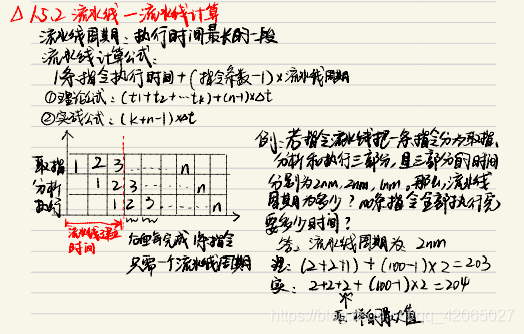 △ 1.5.2 流水线—流水线计算
流水线周期：执行时间最长的一段
流水线计算公式：
1条指令执行时间+(指令条数-1)×流水线周期
①理论公式：(t1+t2+…tk)+(n-1)×Δt
②实践公式：(k+n-1)×Δt
取指 1 2 3 n
分析 1 2 3 n
执行 1 2 3 n
流水线建立
时间
后面每完成1条指令
只需一个流水线周期
例：若指令流水线把一条指令分为取指、
分析和执行三部分，且三部分的时间
分别为2nm，2nm，1nm。那么，流水线
周期为多少？100条指令全部执行完
要多少时间？
答：流水线周期为 2nm
理：(2+2+1)+(100-1)×2=203
实：2+2+2+(100-1)×2=204
都取最大值